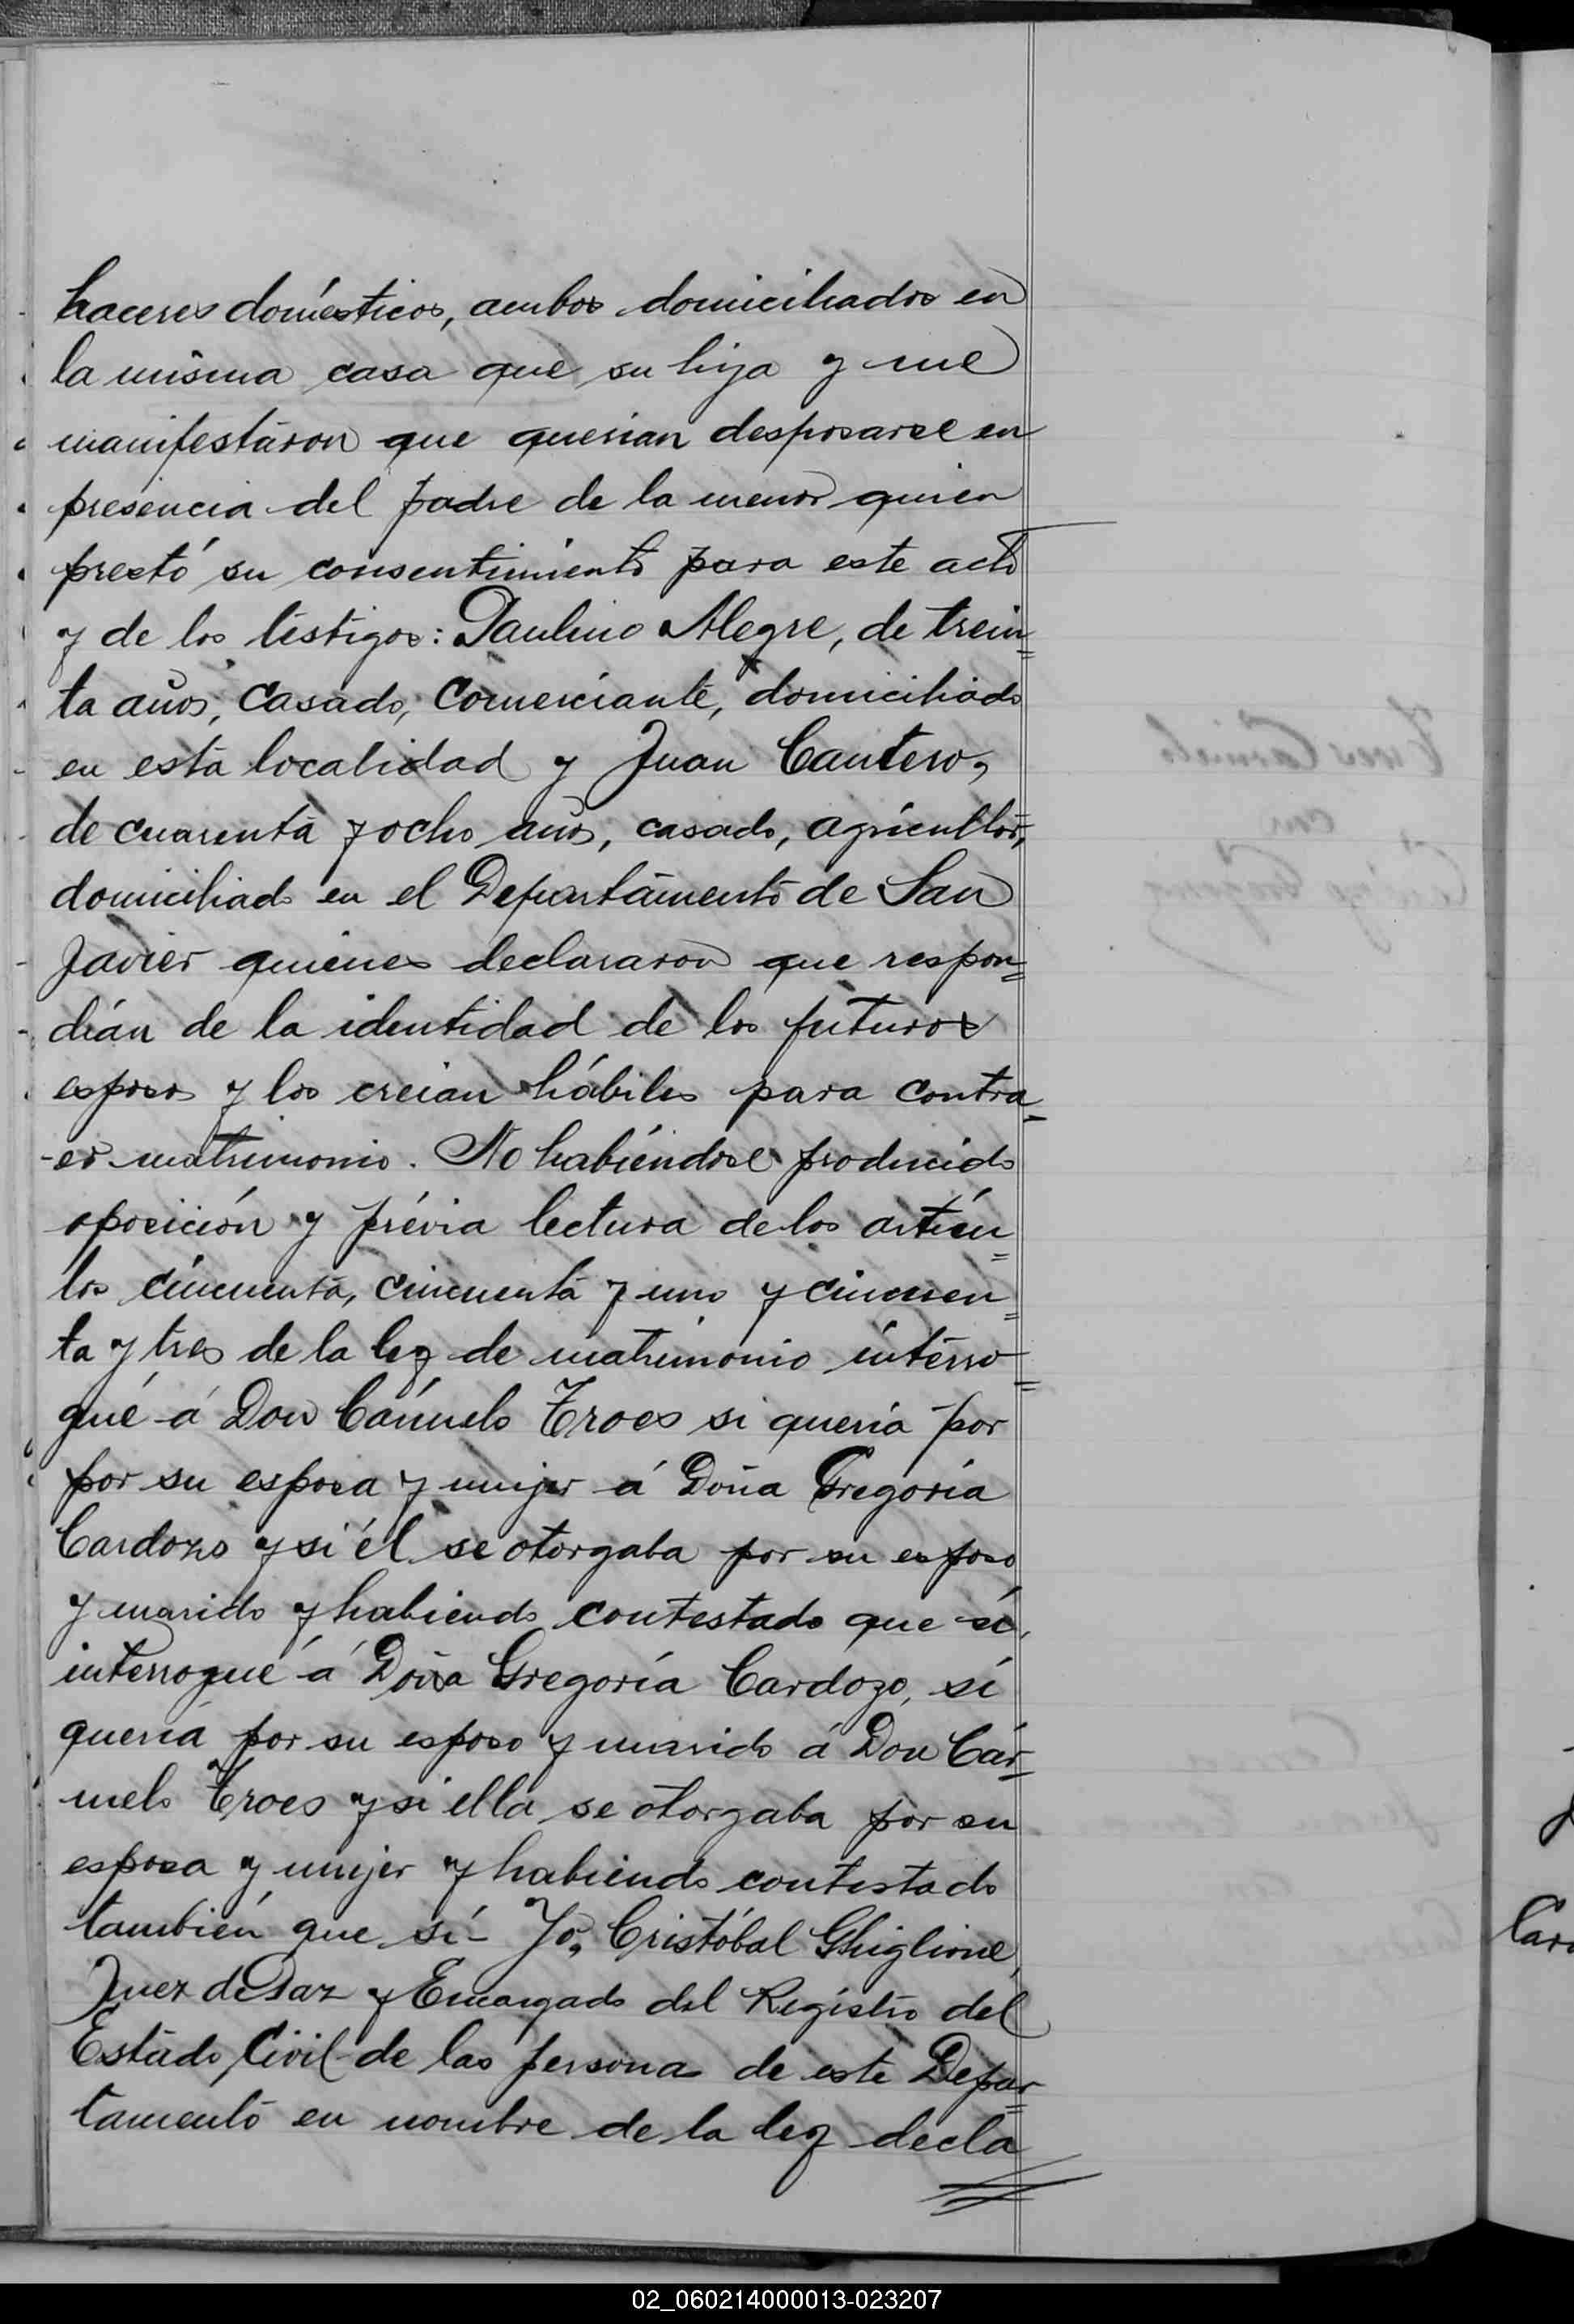 haceres domésticos, ambos domiciliados en
la misma casa que su hija y me
manifestáron que querian desposarse en
presencia del padre de la menor quien
prestó su consentimiento para este acto
y de los testigos: Paulino Alegre, de trein=
ta años, casado, comerciante, domiciliado
en esta localidad y Juan Cantero,
de cuarenta y ocho años, casado, agricultor,
domiciliado en el Departamento de San
Javier quienes declararon que respon=
dián de la identidad de los futuros
esposos y los creian hábiles para contra-
-er matrimonio. No habiéndose producido
oposición y prévia lectura de los artícu=
los cincuenta, cincuenta y uno y cincuen=
ta y tres de la ley de matrimonio interro=
gué á Don Cármelo Troes si queria por
por su esposa y mujer á Doña Gregoria
Cardozo y si él se otorgaba por su esposo
y marido y habiendo contestado que sí,
interrogué á Doña Gregoría Cardozo, si
queria por su esposo y marido á Don Cár=
melo Troes y si ella se otorgaba por su
esposa y mujer y habiendo contestado
también que sí- Yo, Cristóbal Ghiglione,
Juez de Paz y Encargado del Registro del
Estado Civil de las personas de este Depar=
tamento en nombre de la ley decla
02_060214000013-023207